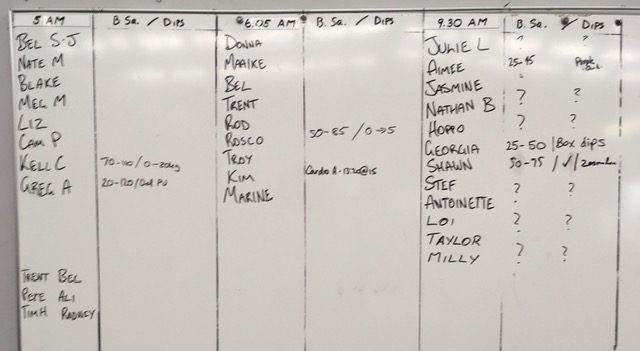 5 AM
B Sa. / DIPS
6.05 AM
B. Sa. / DIPS
9.30 AM
B. Sa. / DIPS
BEL S-J
NATE M
BLAKE
MEG M
LIZ
CAM P
KELL C 70-110 / 0-20kg
GREG A
TRENT BEL
PETE ALI
TIMH RODNEY
DONNA
MAAIKE
BEL
TRENT
ROD
ROSCO 50-85 / 0→5
TROY
KIM
MARINE
JULIE L ? ?
AIMEE 25-45
JASMINE
NATHAN B ? ?
HOPPO ? ?
GEORGIA 25-50 | Box dips
SHAWN 50-75 / ✓ /
STEF ? ?
ANTOINETTE
LOI ? ?
TAYLOR
MILLY ? ?